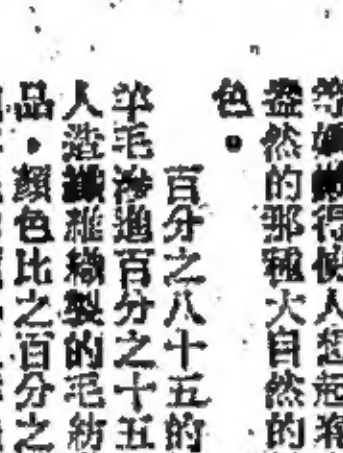 得使人想起
盎然的那種大自然的
色。
百分之八十五的
羊毛滲進百分之十五
人造纖維織製的毛紡
品。顏色比之百分之